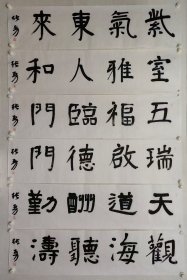 紫氣東來
室雅人和
五福臨門
瑞啟德門
天道酬勤
觀海聽濤